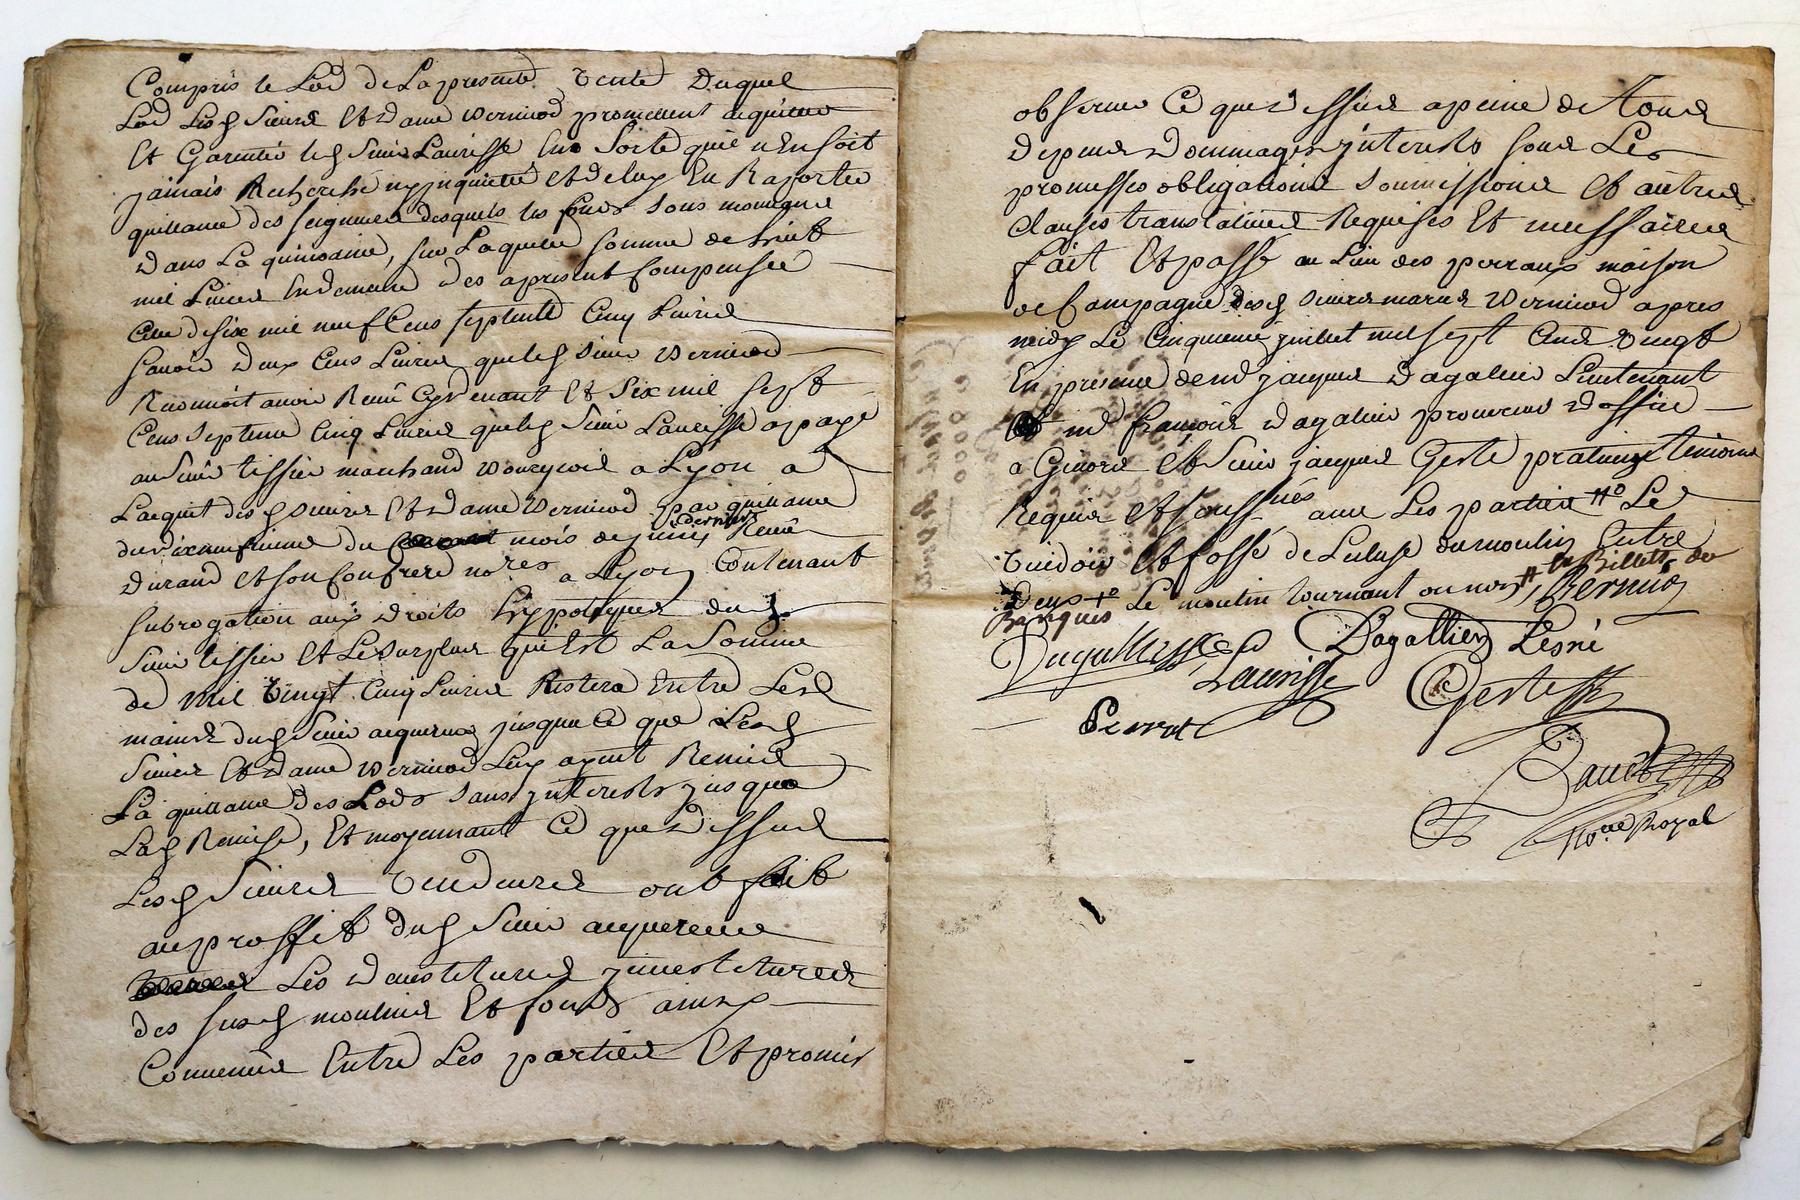 Compris le Lod de La presente vente Duquel
Lod Lesd Sieurs Et Dame Verniod promettent aquitter
Et Garentir led Sieur Laurisse En Sorte qu'il n'En soit
jamais Recherché ny jnquietté et de luy En Raporter
quittance des seigneurs desquels les fonds sons mouvans
Dans La quinsaine, sur Laquelle somme de huit
mil Livres Endemeure des apresent Compensée
Celle de six mil neuf Cens septente Cinq Livres
savoir Deux Cens Livres queled Sieur Verniod
Reconnoit avoir Reçu Cydevant Et Six mil sept
Cens septente Cinq Livres queled Sieur Laurisse a payé
au Sieur tissier marchand Bourgeois a Lyon a
L'acquit desd Sieurs Et Dame Verniod par quittance
du dixneufvieme du mois de juin dernier Reçue
Durand et son Confrere no.res a Lyon Contenant
subrogation aux Droits hyppoteques dud
Sieur tissier Et Le Surplus qui Est La Somme
de mil vingt Cinq Livres Restera Entre Les
mains dud Sieur acquereur jusqua Ce que Lesd
Sieurs Et Dame Verniod Luy ayent Remis
La quittance des Lods Sans jnterests jusqua
Lad Remise, Et moyennant Ce que Dessus
Lesd Sieurs vendeurs ont fait
au proffit dud Sieur acquereur
Les Devestitures jnvestitures
des susd moulins Et fonds ainsy
Convenu Entre Les parties Et promis
observer Ce que Dessus apeine de tous
Depens Dommages jnterests sous Les
promesses obligations soumissions Et autres
Clauses translatives Requises Et nessaires
fait Et passé au Lieu des perraux maison
de Campagne desd Sieurs mariés Verniod apres
midy Le Cinquieme juillet mil sept Cens vingt
En presence de me jacques Dagallier Lieutenant
Et me françois Dagallier procureur Doffice
a et Sieur jacques Geste praticien temoins
Requis Et soussnés avec Les parties #o Le
vuidoir Et fossé de Lecluse du moulin Entre
Deux +o Le moulin tournant ou non # les Billets de
Banques Verniod
Laurisse Dagallier Lesné
Perrot Geste
No.re Royal